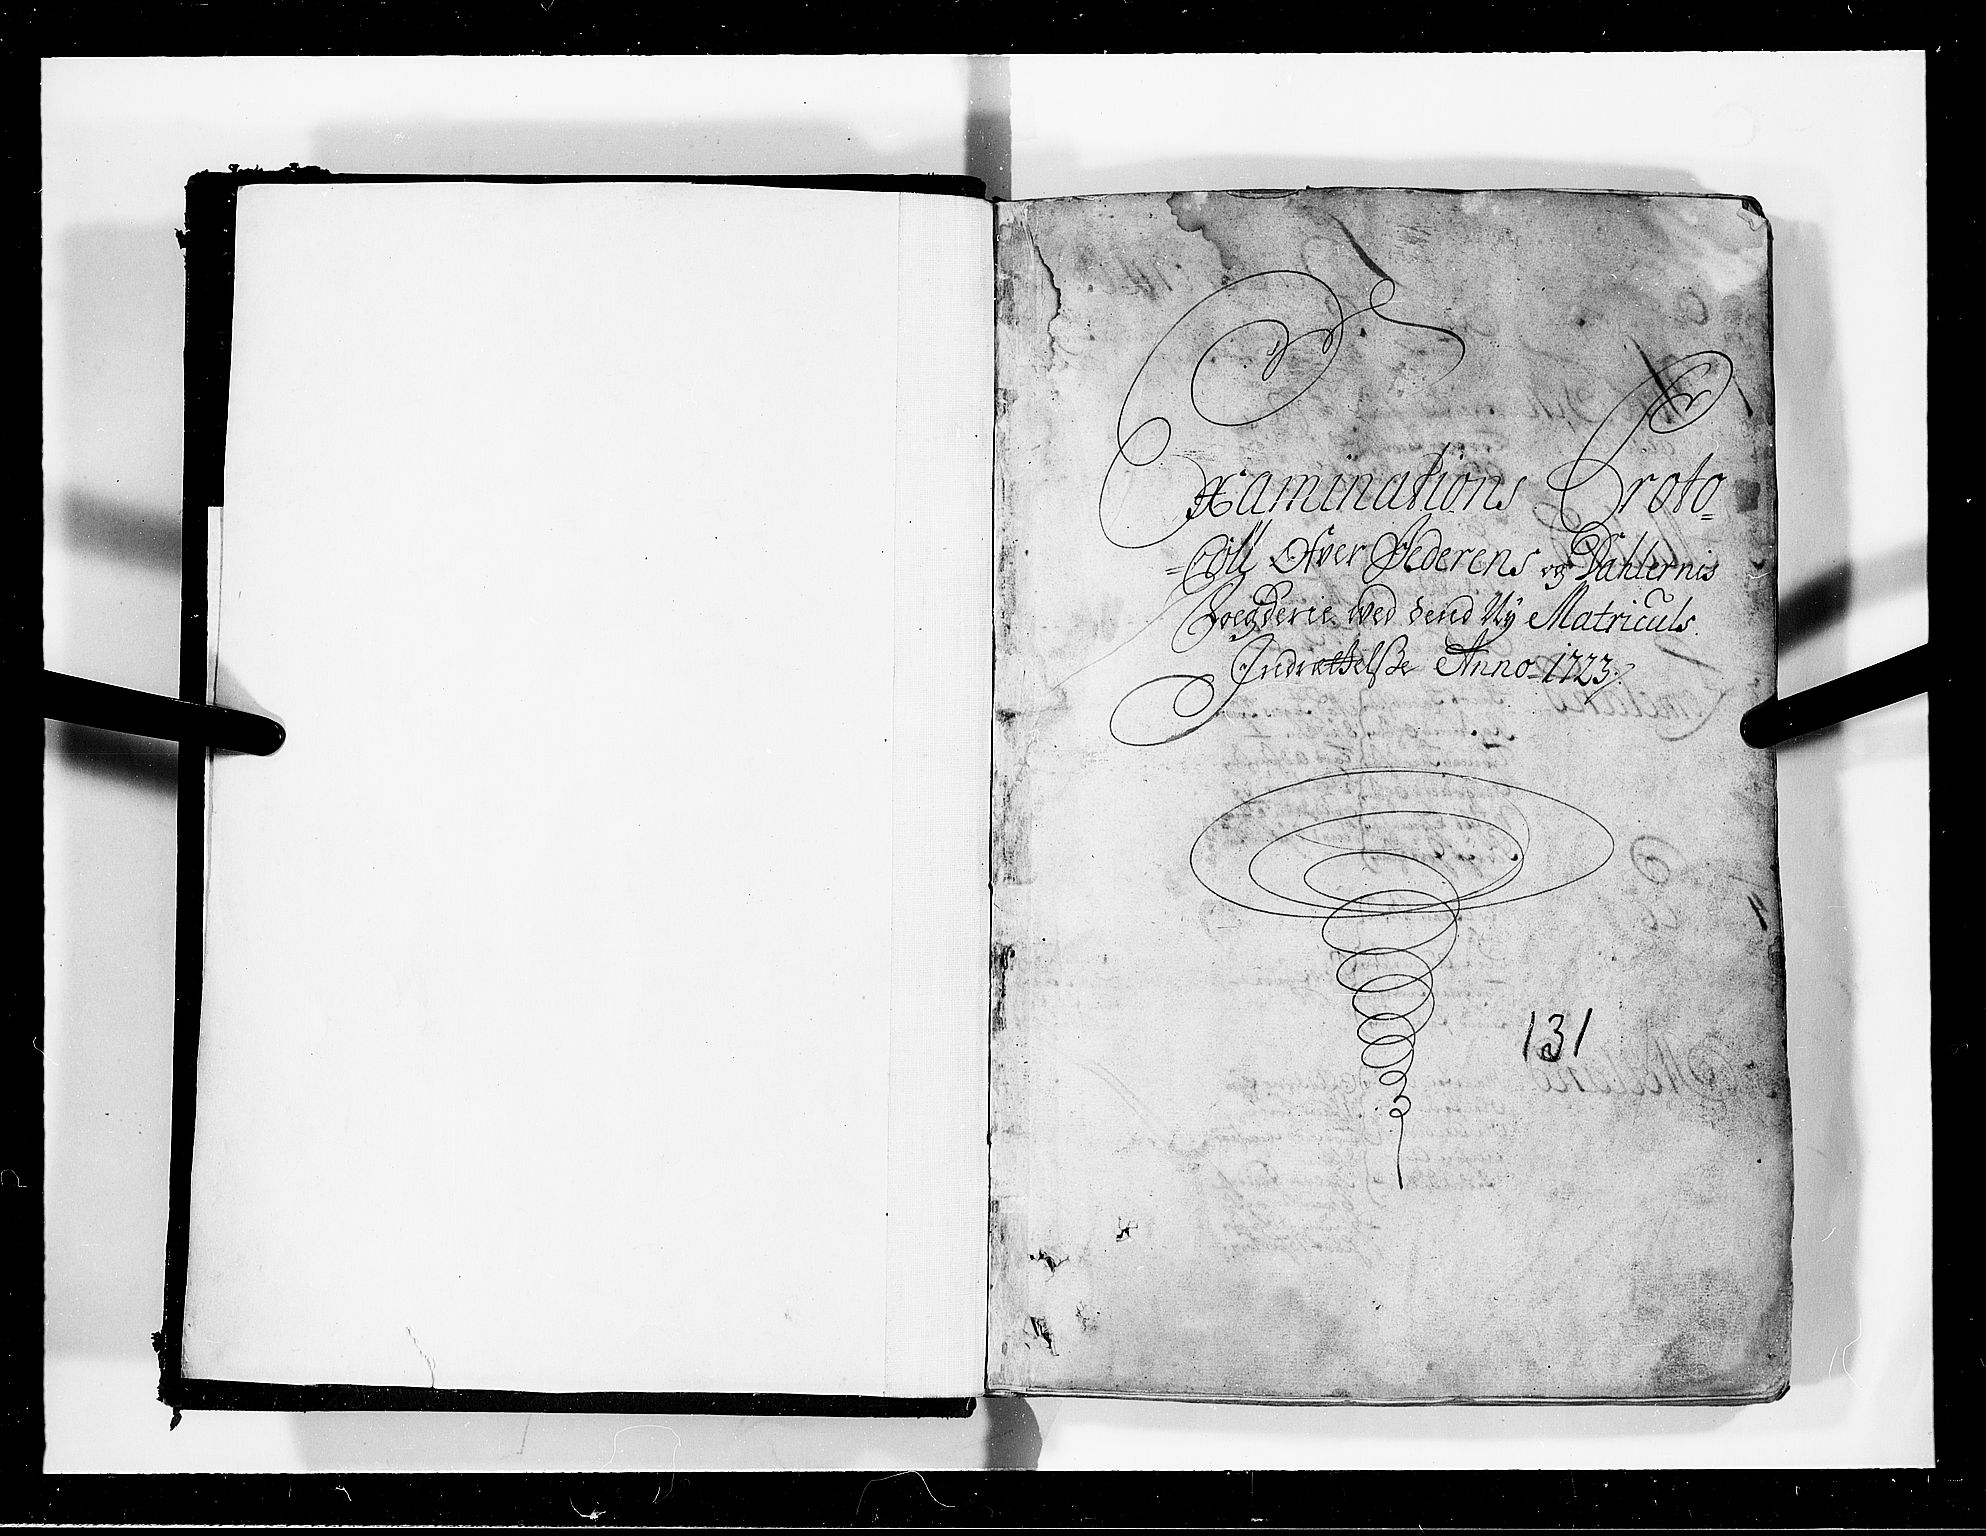 Examinations Proto=
=Coll Ofver Jederens og Dahlernis
Foegderie wed dend Ny Matriculs
Indrættelsße Anno 1723
131